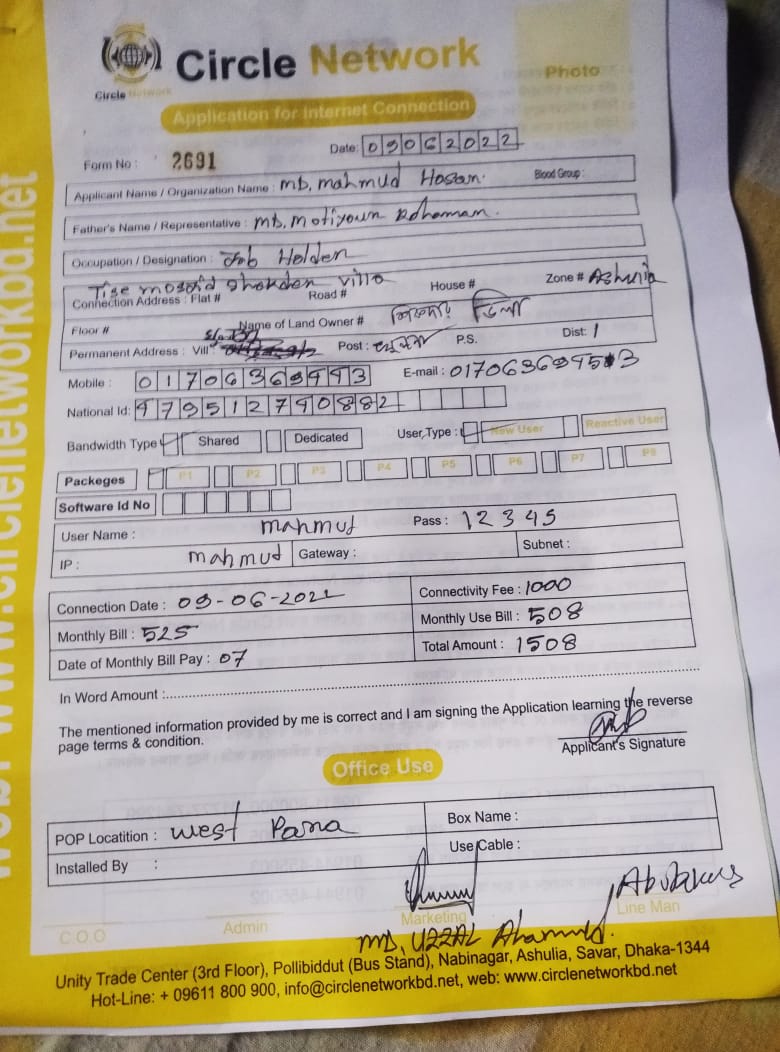 Circle Network
Circle Network
Photo
Application for Internet Connection
Date: 09062022
Form No : 2691
Applicant Name / Organization Name : MD. Mahmud Hasan. Blood Group :
Father's Name / Representative : MD. Motiyour Rohoman.
Occupation / Designation : Job Holder
Villa
Connection Address : Flat # Road # House # Zone # Ashulia
Floor # Name of Land Owner # শিকদার ভিলা
Permanent Address : Vill Post : P.S. Dist:
Mobile : E-mail :
National Id:
Bandwidth Type Shared Dedicated User Type : New User Reactive User
Packeges P1 P2 P3 P4 P5 P6 P7 P8
Software Id No
User Name : mahmud Pass : 12345
IP : mahmud Gateway : Subnet :
Connection Date : 09-06-2022 Connectivity Fee : 1000
Monthly Bill : 525 Monthly Use Bill : 508
Date of Monthly Bill Pay : 07 Total Amount : 1508
In Word Amount :
The mentioned information provided by me is correct and I am signing the Application learning the reverse
page terms & condition.
Applicant's Signature
Office Use
POP Locatition : West Para Box Name :
Installed By : Use Cable :
C.O.O Admin Marketing Line Man
MD, UZZAL Ahammed.
Unity Trade Center (3rd Floor), Pollibiddut (Bus Stand), Nabinagar, Ashulia, Savar, Dhaka-1344
Hot-Line: + 09611 800 900, info@circlenetworkbd.net, web: www.circlenetworkbd.net
www.circlenetworkbd.net